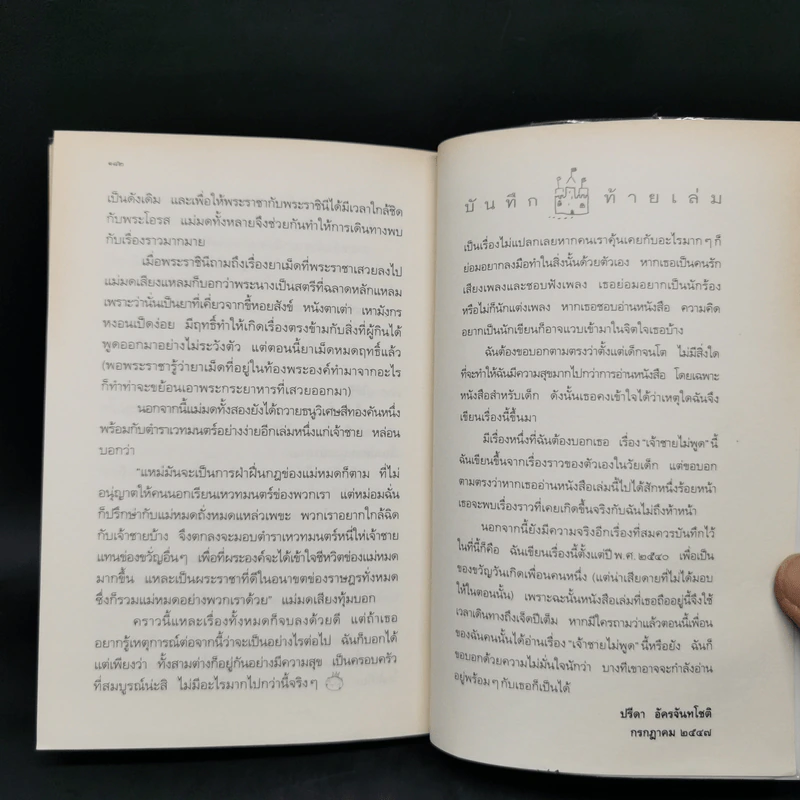 ๑๘๒
เป็นดังเดิม และเพื่อให้พระราชากับพระราชินีได้มีเวลาใกล้ชิด
กับพระโอรส แม่มดทั้งหลายจึงช่วยกันทำให้การเดินทางพบ
กับเรื่องราวมากมาย
เมื่อพระราชินีถามถึงเรื่องยาเม็ดที่พระราชาเสวยลงไป
แม่มดเสียงแหลมก็บอกว่าพระนางเป็นสตรีที่ฉลาดหลักแหลม
เพราะว่านั่นเป็นยาที่เคี่ยวจากขี้หอยสังข์ หนังตาเต่า เหามังกร
หงอนเป็ดง่อย มีฤทธิ์ทำให้เกิดเรื่องตรงข้ามกับสิ่งที่ผู้กินได้
พูดออกมาอย่างไม่ระวังตัว แต่ตอนนี้ยาเม็ดหมดฤทธิ์แล้ว
(พอพระราชารู้ว่ายาเม็ดที่อยู่ในท้องพระองค์ทำมาจากอะไร
ก็ทำท่าจะขย้อนเอาพระกระยาหารที่เสวยออกมา)
นอกจากนี้แม่มดทั้งสองยังได้ถวายธนูวิเศษสีทองคันหนึ่ง
พร้อมกับตำราเวทมนตร์อย่างง่ายอีกเล่มหนึ่งแก่เจ้าชาย หล่อน
บอกว่า
"แหม่มันจะเป็นการฝ่าฝืนกฎช่องแม่หมดก็ตาม ที่ไม่
อนุญาตให้คนนอกเรียนเหวทมนตร์ช่องพวกเรา แต่หม่อมฉั่น
ก็ปรึกษากับแม่หมดถั่งหมดแหล่วเพขะ พวกเราอยากใกล้ฉิด
กับเจ้าชายบ้าง จึงตกลงจะมอบตำราเหวทมนตร์หนี่ให้เจ้าชาย
แทนช่องขวั่ญอื่นๆ เพื่อที่ผระองค์จะได้เข้าใจชีหวิตช่องแม่หมด
มากขึ้น แหละเป็นผระราชาที่ดีในอนาขตช่องราษฎรทั่งหมด
ซึ่งก็รวมแม่หมดอย่างพวกเราด้วย" แม่มดเสียงทุ้มบอก
คราวนี้แหละเรื่องทั้งหมดก็จบลงด้วยดี แต่ถ้าเธอ
อยากรู้เหตุการณ์ต่อจากนี้ว่าจะเป็นอย่างไรต่อไป ฉันก็บอกได้
แต่เพียงว่า ทั้งสามต่างก็อยู่กันอย่างมีความสุข เป็นครอบครัว
ที่สมบูรณ์น่ะสิ ไม่มีอะไรมากไปกว่านี้จริงๆ
บันทึกท้ายเล่ม
เป็นเรื่องไม่แปลกเลยหากคนเราคุ้นเคยกับอะไรมากๆ ก็
ย่อมอยากลงมือทำในสิ่งนั้นด้วยตัวเอง หากเธอเป็นคนรัก
เสียงเพลงและชอบฟังเพลง เธอย่อมอยากเป็นนักร้อง
หรือไม่ก็นักแต่งเพลง หากเธอชอบอ่านหนังสือ ความคิด
อยากเป็นนักเขียนก็อาจแวบเข้ามาในจิตใจเธอบ้าง
ฉันต้องขอบอกตามตรงว่าตั้งแต่เด็กจนโต ไม่มีสิ่งใด
ที่จะทำให้ฉันมีความสุขมากไปกว่าการอ่านหนังสือ โดยเฉพาะ
หนังสือสำหรับเด็ก ดังนั้นเธอคงเข้าใจได้ว่าเหตุใดฉันจึง
เขียนเรื่องนี้ขึ้นมา
มีเรื่องหนึ่งที่ฉันต้องบอกเธอ เรื่อง "เจ้าชายไม่พูด" นี้
ฉันเขียนขึ้นจากเรื่องราวของตัวเองในวัยเด็ก แต่ขอบอก
ตามตรงว่าหากเธออ่านหนังสือเล่มนี้ไปได้สักหนึ่งร้อยหน้า
เธอจะพบเรื่องราวที่เคยเกิดขึ้นจริงกับฉันไม่ถึงห้าหน้า
นอกจากนี้ยังมีความจริงอีกเรื่องที่สมควรบันทึกไว้
ในที่นี้ก็คือ ฉันเขียนเรื่องนี้ตั้งแต่ปี พ.ศ. ๒๕๔๐ เพื่อเป็น
ของขวัญวันเกิดเพื่อนคนหนึ่ง (แต่น่าเสียดายที่ไม่ได้มอบ
ให้ในตอนนั้น) เพราะฉะนั้นหนังสือเล่มที่เธอถืออยู่นี้จึงใช้
เวลาเดินทางถึงเจ็ดปีเต็ม หากมีใครถามว่าแล้วตอนนี้เพื่อน
ของฉันคนนั้นได้อ่านเรื่อง "เจ้าชายไม่พูด" นี้หรือยัง ฉันก็
ขอบอกด้วยความไม่มั่นใจนักว่า บางทีเขาอาจจะกำลังอ่าน
อยู่พร้อมๆ กับเธอก็เป็นได้
ปรีดา อัครจันทโชติ
กรกฎาคม ๒๕๔๗